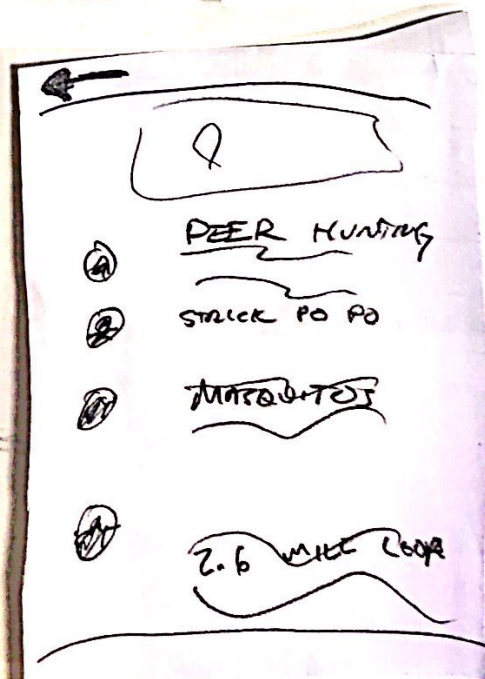 DEER HUNTING
STRICK PO PO
MASQUITOS
2.6 MILE LOOP